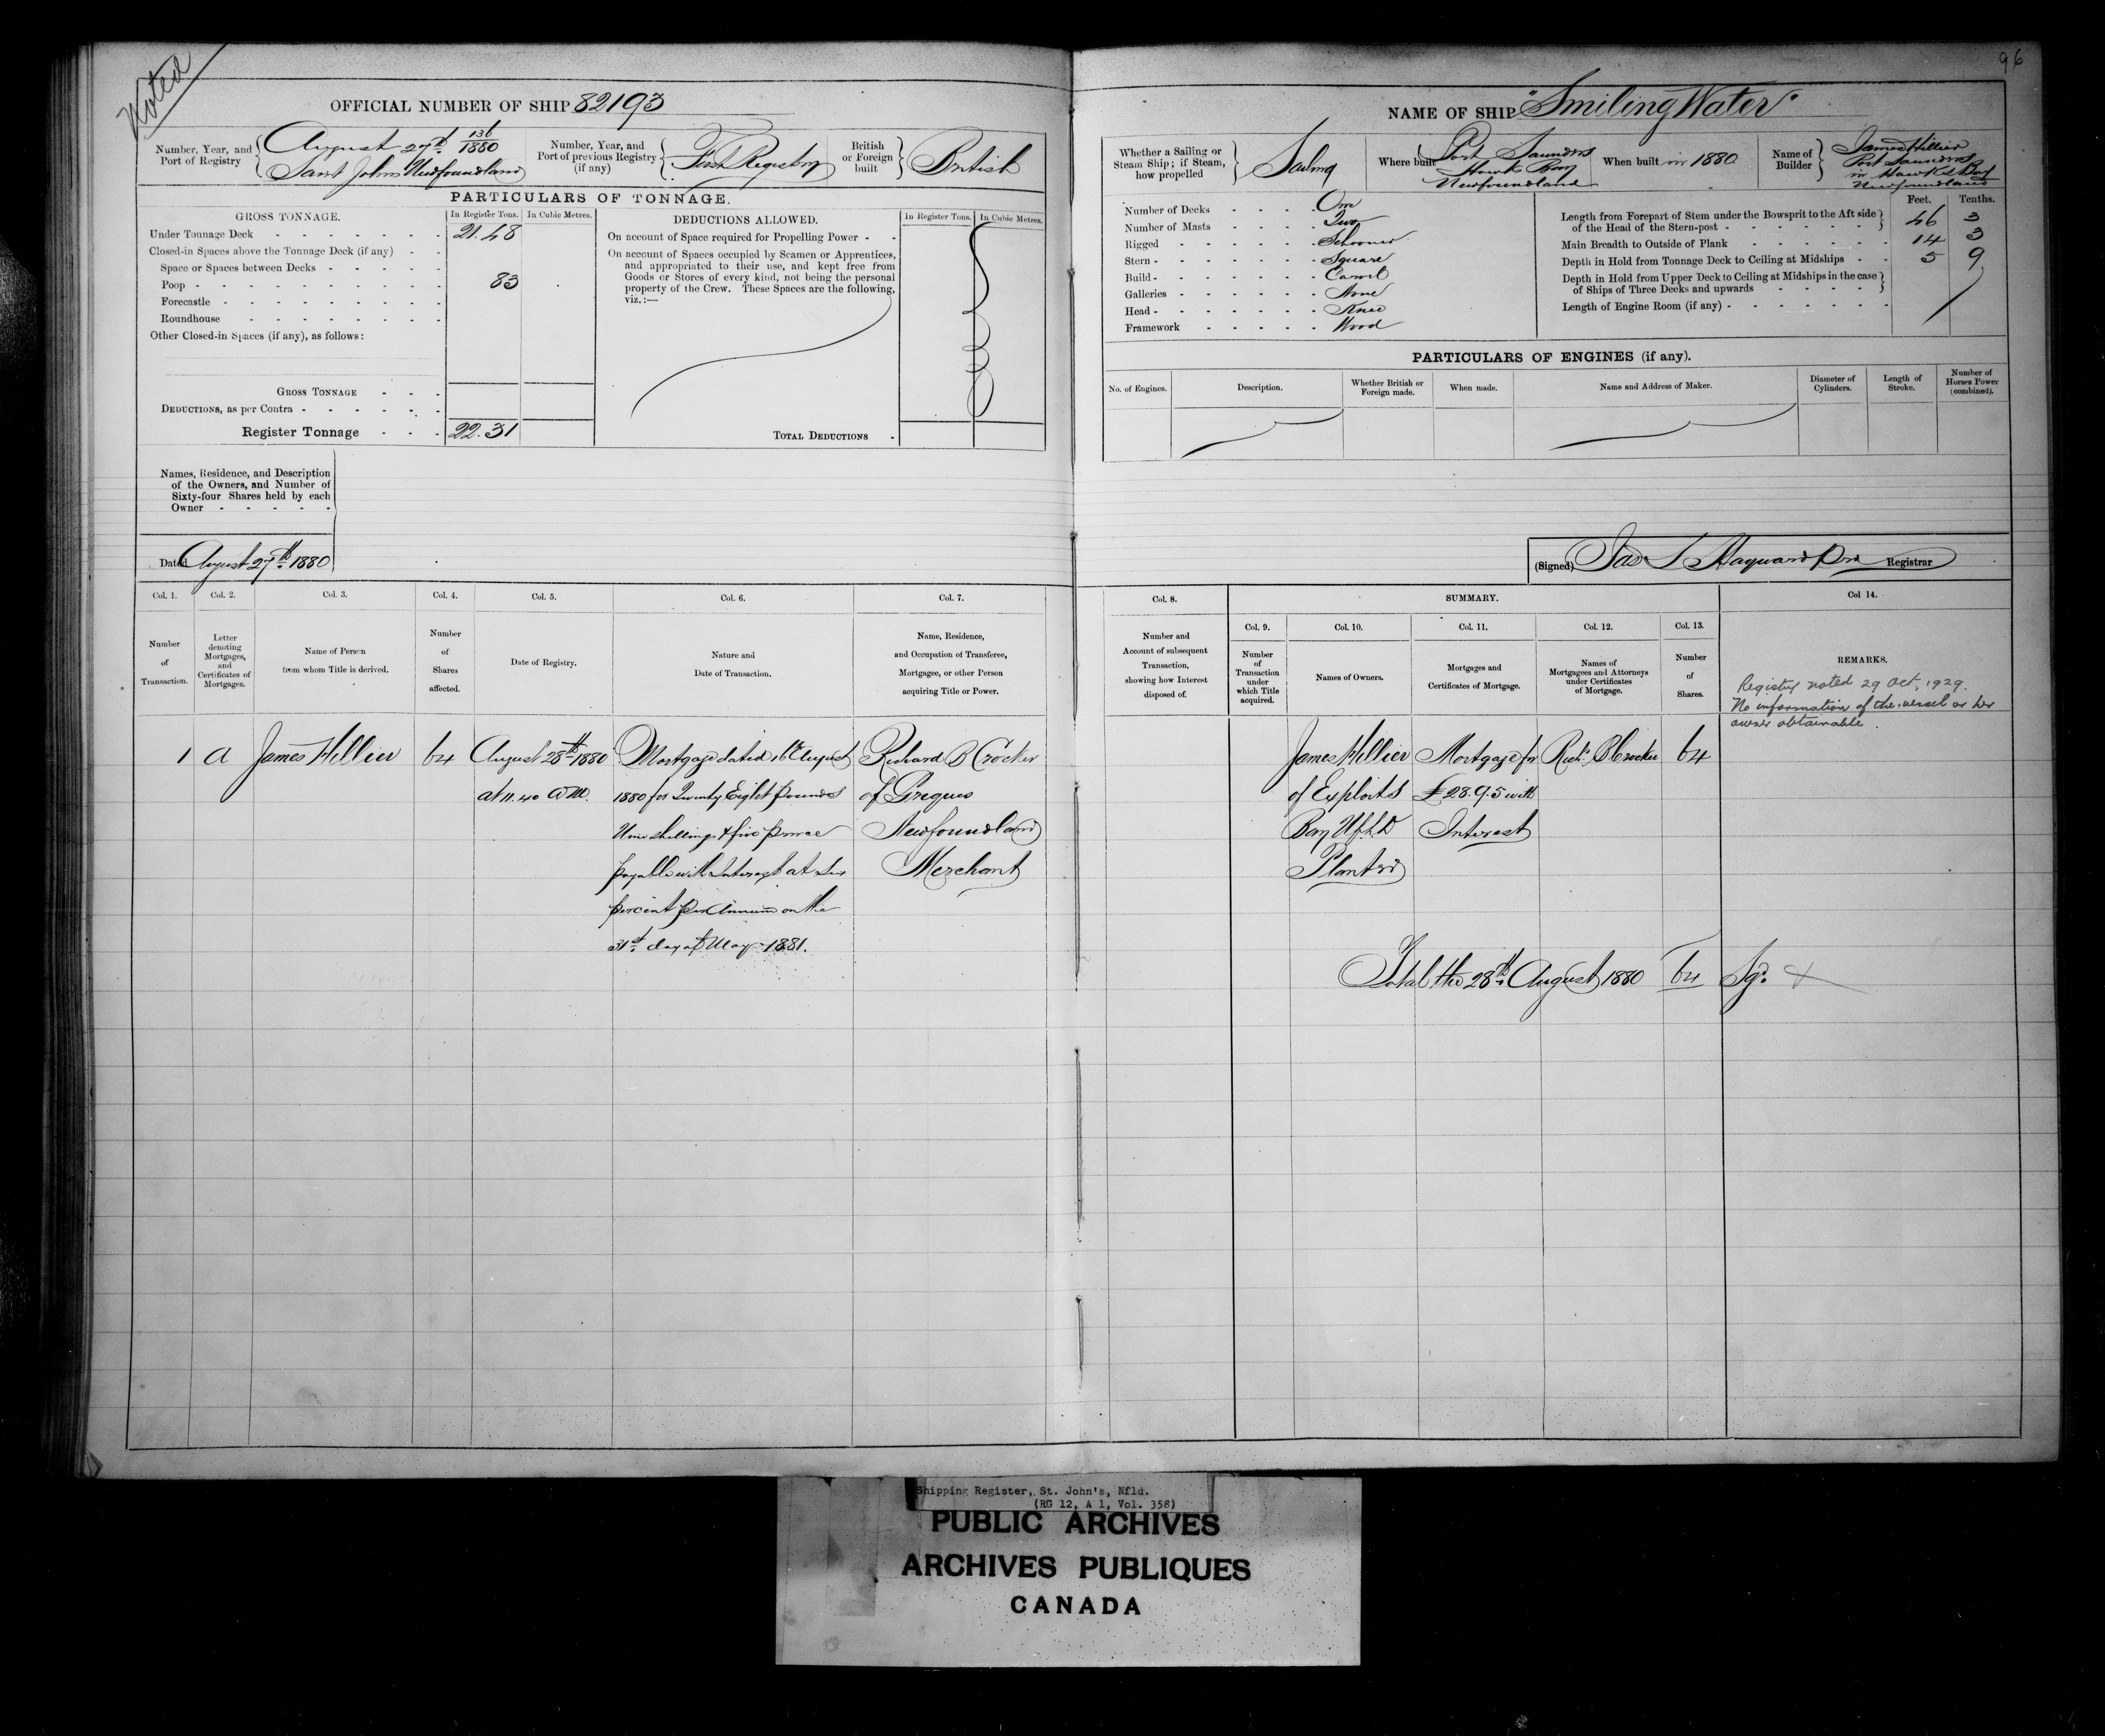 Noted
96
OFFICIAL NUMBER OF SHIP 82193
NAME OF SHIP "Smiling Water"
Number, Year, and Port of Registry
August 27th 136/1880
Saint Johns Newfoundland
Number, Year, and Port of previous Registry (if any)
First Registry
British or Foreign built
British
Whether a Sailing or Steam Ship; if Steam, how propelled
Sailing
Where built
Port Saunders
Hawks Bay
Newfoundland
When built in 1880
Name of Builder
James Hillier
Port Saunders
in Hawkes Bay
Newfoundland
PARTICULARS OF TONNAGE.
GROSS TONNAGE.
In Register Tons.
In Cubic Metres.
Under Tonnage Deck 21.48
Closed-in Spaces above the Tonnage Deck (if any)
Space or Spaces between Decks
Poop 83
Forecastle
Roundhouse
Other Closed-in Spaces (if any), as follows:
GROSS TONNAGE
DEDUCTIONS, as per Contra
Register Tonnage 22.31
DEDUCTIONS ALLOWED.
In Register Tons.
In Cubic Metres.
On account of Space required for Propelling Power
On account of Spaces occupied by Seamen or Apprentices,
and appropriated to their use, and kept free from
Goods or Stores of every kind, not being the personal
property of the Crew. These Spaces are the following,
viz.:—
TOTAL DEDUCTIONS
Number of Decks One
Number of Masts Two
Rigged Schooner
Stern Square
Build Carvel
Galleries None
Head Knee
Framework Wood
Feet. Tenths.
Length from Forepart of Stem under the Bowsprit to the Aft side
of the Head of the Stern-post 46 3
Main Breadth to Outside of Plank 14 3
Depth in Hold from Tonnage Deck to Ceiling at Midships 5 9
Depth in Hold from Upper Deck to Ceiling at Midships in the case
of Ships of Three Decks and upwards
Length of Engine Room (if any)
PARTICULARS OF ENGINES (if any).
No. of Engines.
Description.
Whether British or Foreign made.
When made.
Name and Address of Maker.
Diameter of Cylinders.
Length of Stroke.
Number of Horses Power (combined).
Names, Residence, and Description
of the Owners, and Number of
Sixty-four Shares held by each
Owner
Dated August 27th 1880
(Signed) Jas S Hayward Registrar
Col. 1.
Number of Transaction.
Col. 2.
Letter denoting Mortgages, and Certificates of Mortgages.
Col. 3.
Name of Person from whom Title is derived.
Col. 4.
Number of Shares affected.
Col. 5.
Date of Registry.
Col. 6.
Nature and Date of Transaction.
Col. 7.
Name, Residence, and Occupation of Transferee, Mortgagee, or other Person acquiring Title or Power.
Col. 8.
Number and Account of subsequent Transaction, showing how Interest disposed of.
SUMMARY.
Col. 9.
Number of Transaction under which Title acquired.
Col. 10.
Names of Owners.
Col. 11.
Mortgages and Certificates of Mortgage.
Col. 12.
Names of Mortgagees and Attorneys under Certificates of Mortgage.
Col. 13.
Number of Shares.
Col 14.
REMARKS.
Registry noted 29 Oct, 1929.
No information of the vessel or her
owner obtainable.
1
A
James Hillier
64
August 28th 1880
at 11.40 AM.
Mortgage dated 16th August
1880 for Twenty Eight pounds
Nine shillings & five pence
payable with Interest at Six
percent per Annum on the
31st day of May 1881.
Richard B Crocker
of
Newfoundland
Merchant
James Hillier
of Exploits
Bay Nfld
Planter
Mortgage for
£28.9.5 with
Interest
Richd B Crocker
64
Total the 28th August 1880 64
Shipping Register, St. John's, Nfld.
(RG 12, A 1, Vol. 358)
PUBLIC ARCHIVES
ARCHIVES PUBLIQUES
CANADA